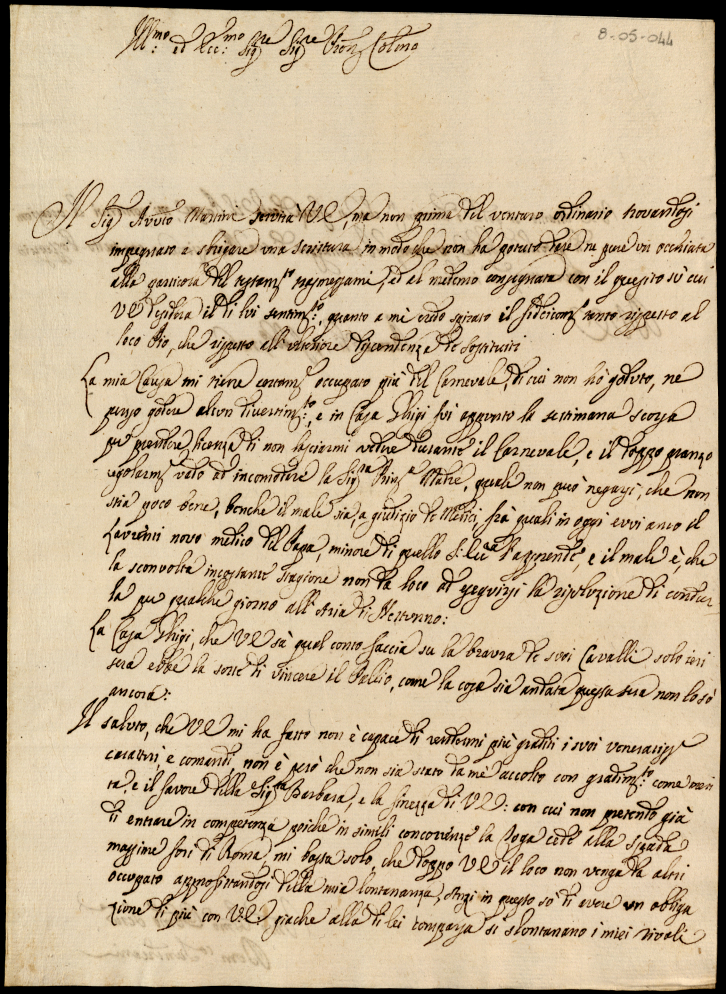 8-05-044
Ill:mo ed Ecc:mo Sig.re Sig.re Pron Colmo
Il Sig Avvto Marini servirà V.E., ma non prima del venturo ordinario trovandosi
impegnato a sbrigare una scrittura in modo che non ha potuto dare ne pure un occhiata
alla particola del testamto trasmessami, ed al medemo consegnata con il quesito sù cui
V.E. desidera il di lui sentimto:, quanto a mè credo spirato il fideicomso tanto rispetto al
loco Pio, che rispetto all'ulteriore discendenza de sostituiti
La mia Causa mi tiene certamte occupato più del Carnevale, di cui non hò goduto, ne
posso godere alcun divertimto:, e in Casa Ghigi fui appunto la settimana scorsa
per prendere licenza di non lasciarmi vedere durante il Carnevale, e il doppo pranzo
regolarmte vado ad incomodare la Sigra Prinssa Madre, quale non può negarsi, che non
stia poco bene, benche il male sia, a giudizio de Medici, frà quali in oggi evvi anco il
Laurenti novo medico del Papa, minore di quello S: Ecca l'apprende, e il male è, che
la sconvolta incostante stagione non dà loco ad eseguirsi la risoluzione di condur-
la per qualche giorno all'Aria di Nettunno:
La Casa Ghigi, che V.E. sà qual conto faccia su la bravura de suoi Cavalli solo ieri
sera ebbe la sorte di vincere il Pallio, come la cosa sia andata questa sera non lo sò
ancora:
Il saluto, che V.E. mi ha fatto non è capace di rendermi più graditi i suoi veneratissi
caratteri, e comandi, non è però che non sia stato da mè accolto con gradimto: come meri
ta, e il favore della Sigra Barbara, e la finezza di V.E: con cui non pretendo già
di entrare in competenza poiche in simili concorrenze la Toga cede alla spada
massime fori di Roma, mi basta solo, che doppo V.E. il loco non venga da altri
occupato approfittandosi della mia lontananza, anzi in questo sò di avere un obbliga
zione di più con V.E: giache alla di lei comparsa si slontanano i miei rivali